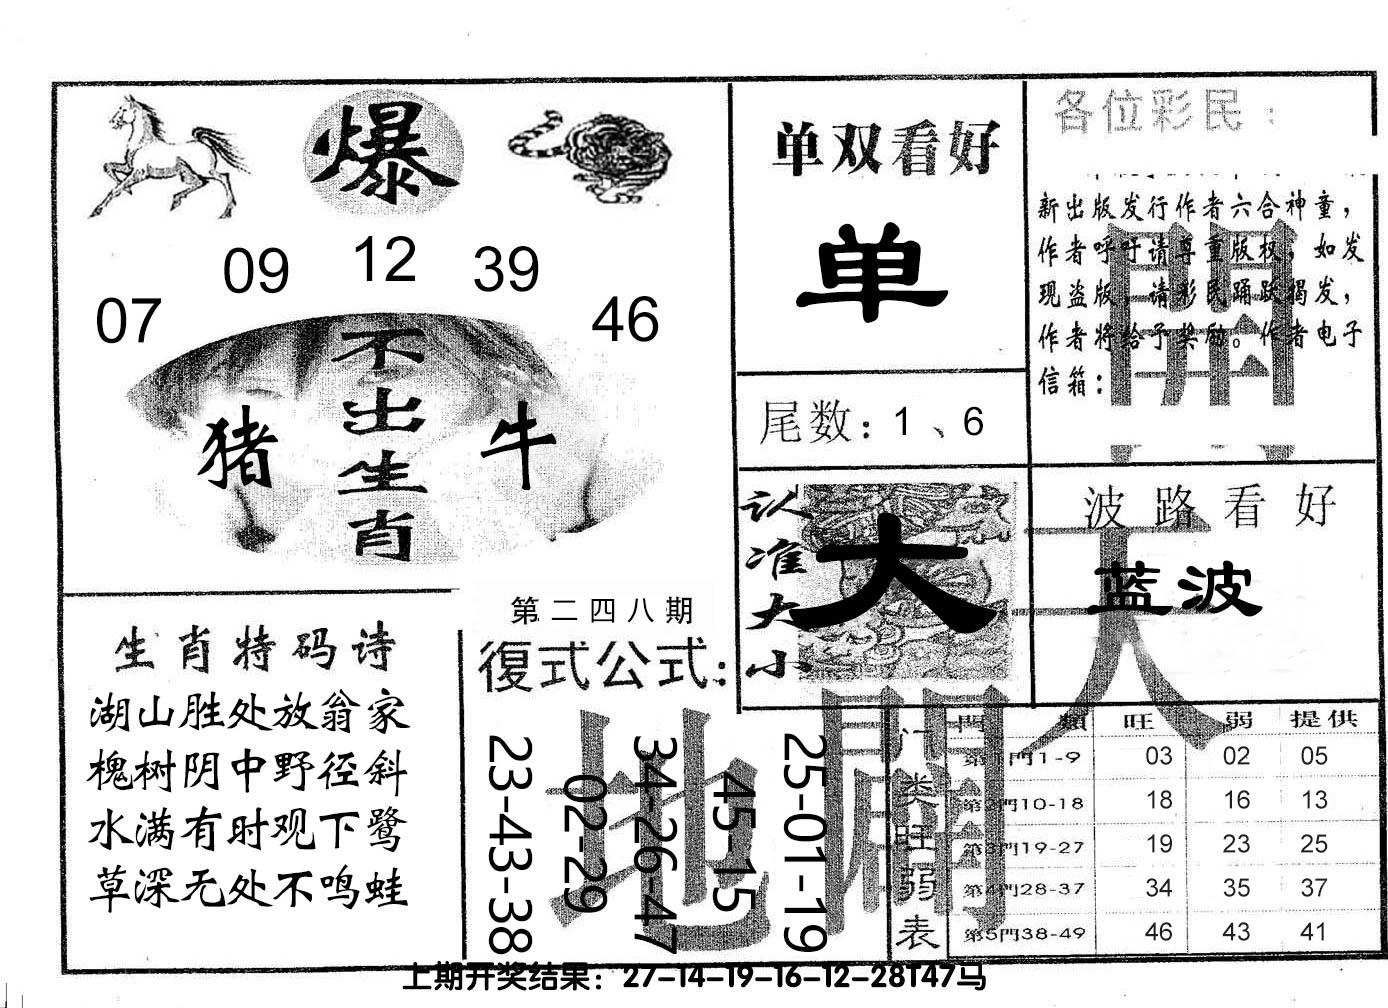 爆
07 09 12 39 46
不出生肖
猪 牛
生肖特码诗
湖山胜处放翁家
槐树阴中野径斜
水满有时观下鹭
草深无处不鸣蛙
第二四八期
復式公式:
23-43-38
02-29
34-26-47
45-15
25-01-19
单双看好
单
尾数: 1、6
认准大小
大
各位彩民:
新出版发行作者六合神童，
作者呼吁请尊重版权，如发
现盗版，请彩民踊跃揭发，
作者将给予奖励。作者电子
信箱:
波路看好
蓝波
天
地
開
開
门类旺弱表
門類 旺 弱 提供
第1門1-9 03 02 05
第2門10-18 18 16 13
第3門19-27 19 23 25
第4門28-37 34 35 37
第5門38-49 46 43 41
上期开奖结果：27-14-19-16-12-28T47马